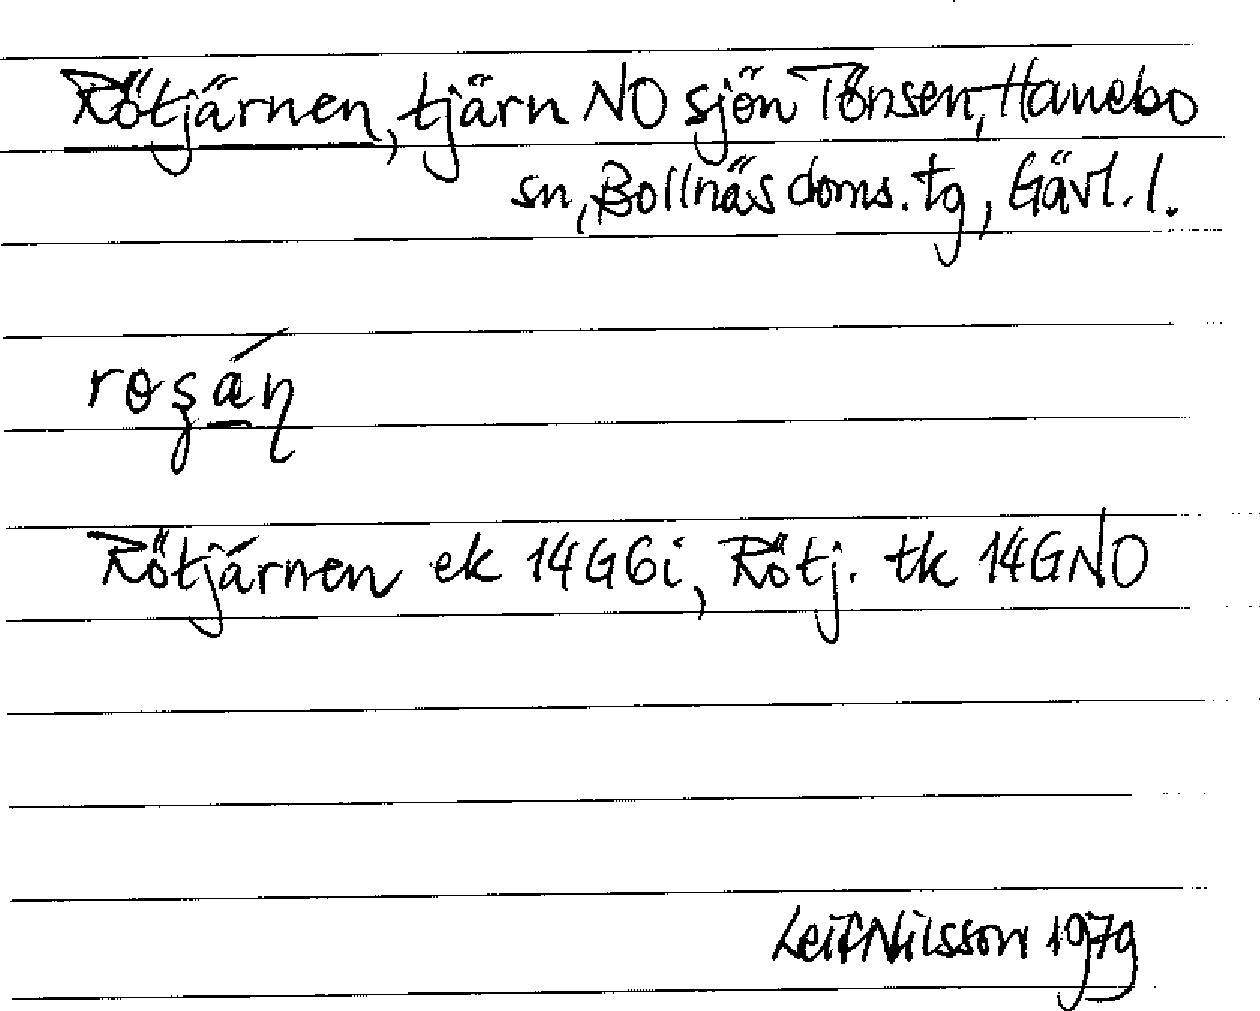 Rötjärnen, tjärn NO sjön Tönsen, Hanebo
sn, Bollnäs doms. tg, Gävl. l.
Rötjärnen ek 14G6i, Rötj. tk 14GNO
Leif Nilsson 1979